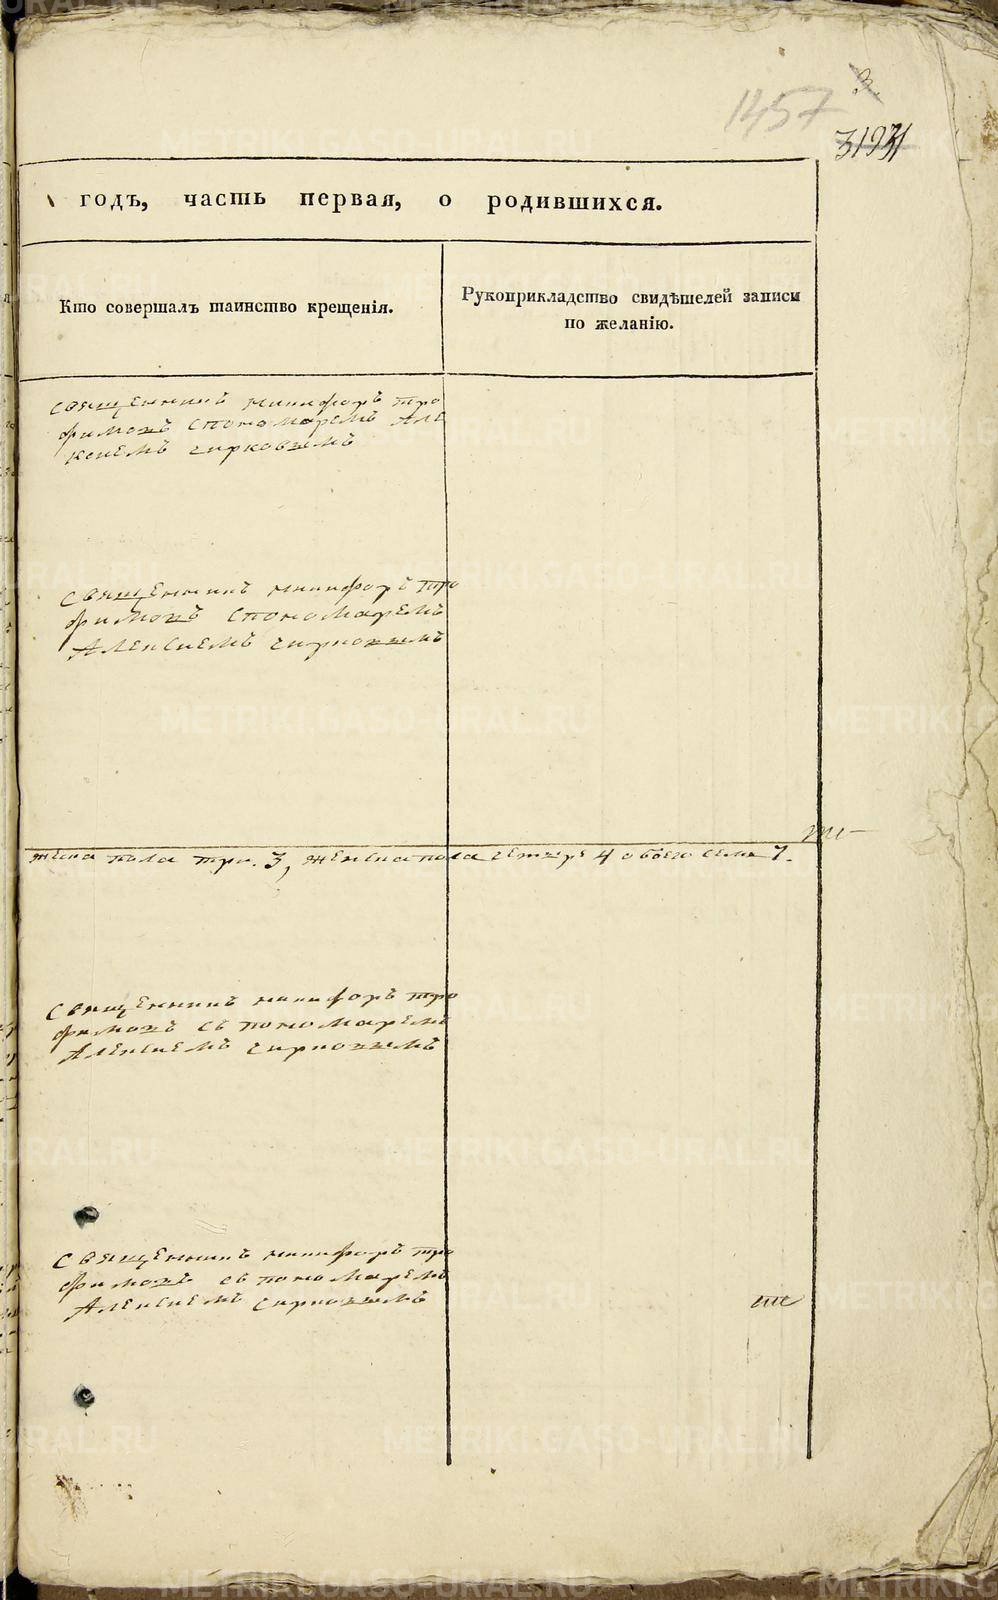 3.
1457
31931
годъ, часть первая, о родившихся.
Кто совершалъ таинство крещенія.
Рукоприкладство свидѣтелей записи
по желанію.
священникъ никифоръ тро
фимовъ спономаремъ Але
ксиемъ чирковымъ
священникъ никифоръ тро
фимовъ спономаремъ
Алексиемъ чирковымъ
пола три. 3, женска пола четыре 4 обоего семь 7.
священникъ никифоръ тро
фимовъ съ пономаремъ
Алексиемъ чирковымъ
священникъ никифоръ тро
фимовъ съ пономаремъ
Алексиемъ чирковымъ
METRIKI.GASO-URAL.RU